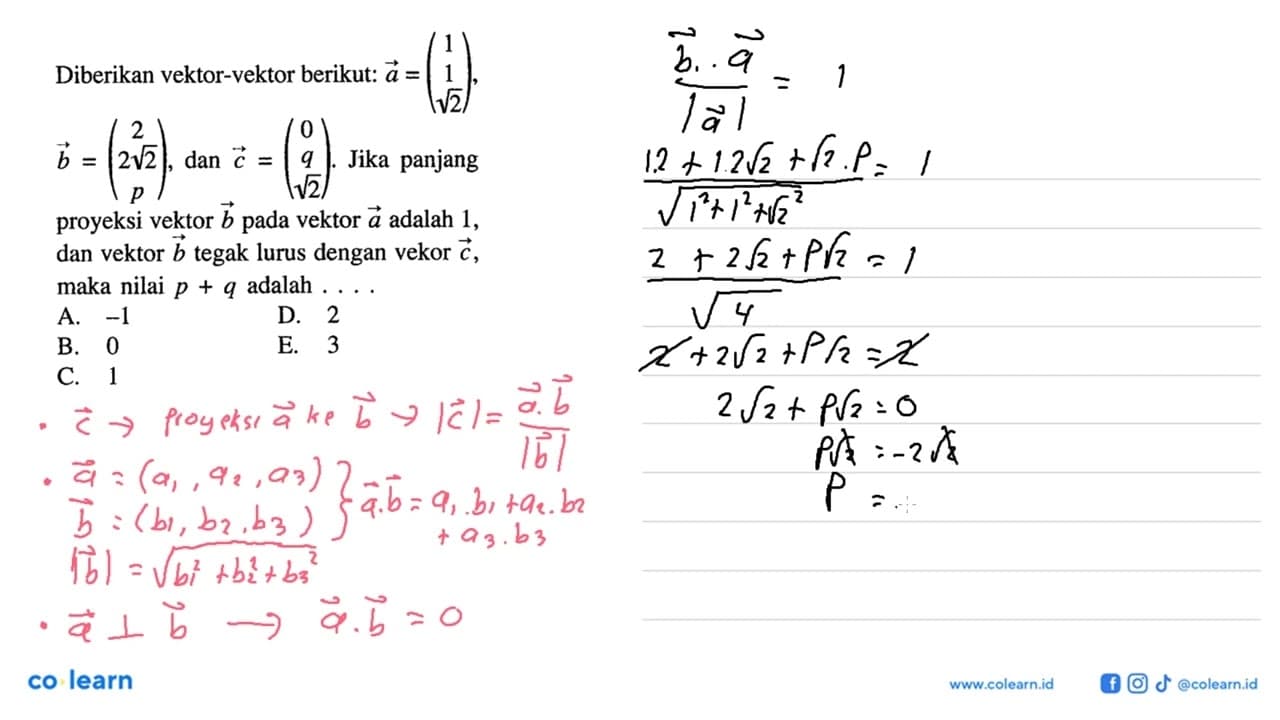 Diberikan vektor-vektor berikut: \vec{a} = \begin{pmatrix} 1 \\ 1 \\ \sqrt{2} \end{pmatrix},
\vec{b} = \begin{pmatrix} 2 \\ 2\sqrt{2} \\ p \end{pmatrix}, dan \vec{c} = \begin{pmatrix} 0 \\ q \\ \sqrt{2} \end{pmatrix}. Jika panjang
proyeksi vektor \vec{b} pada vektor \vec{a} adalah 1,
dan vektor \vec{b} tegak lurus dengan vekor \vec{c},
maka nilai p + q adalah . . . .
A. –1 D. 2
B. 0 E. 3
C. 1
• \vec{c} → proyeksi \vec{a} ke \vec{b} → |\vec{c}| = \frac{\vec{a}.\vec{b}}{|\vec{b}|}
• \vec{a} = (a1, a2, a3)
\vec{b} = (b1, b2, b3)
} \vec{a}.\vec{b} = a1.b1 + a2.b2
+ a3.b3
|\vec{b}| = \sqrt{b1^2 + b2^2 + b3^2}
• \vec{a} ⊥ \vec{b} → \vec{a}.\vec{b} = 0
\frac{\vec{b}..\vec{a}}{|\vec{a}|} = 1
\frac{1.2 + 1.2\sqrt{2} + \sqrt{2}.p}{\sqrt{1^2 + 1^2 + \sqrt{2}^2}} = 1
\frac{2 + 2\sqrt{2} + p\sqrt{2}}{\sqrt{4}} = 1
2 + 2\sqrt{2} + p\sqrt{2} = 2
2\sqrt{2} + p\sqrt{2} = 0
p\sqrt{2} = -2\sqrt{2}
p = -
co learn
www.colearn.id
@colearn.id